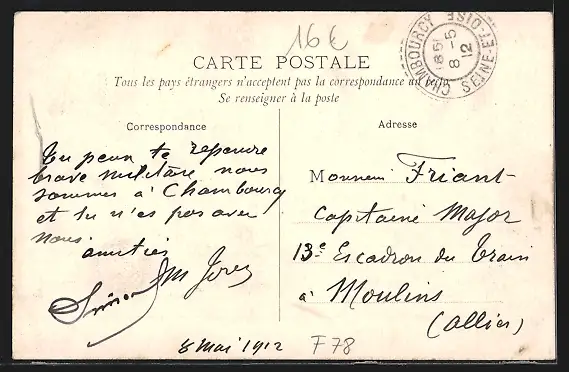 16 €
CHAMBOURCY SEINE-ET-OISE
8-5
12
CARTE POSTALE
Tous les pays étrangers n'acceptent pas la correspondance au recto
Se renseigner à la poste
Correspondance
Tu peux te répendre
brave militaire nous
sommes à Chambourcy
et tu n'es pas avec
nous
amitiés
8 mai 1912
Adresse
Monsieur Friant
Capitaine Major
13e Escadron du Train
à Moulins
(Allier)
F 78